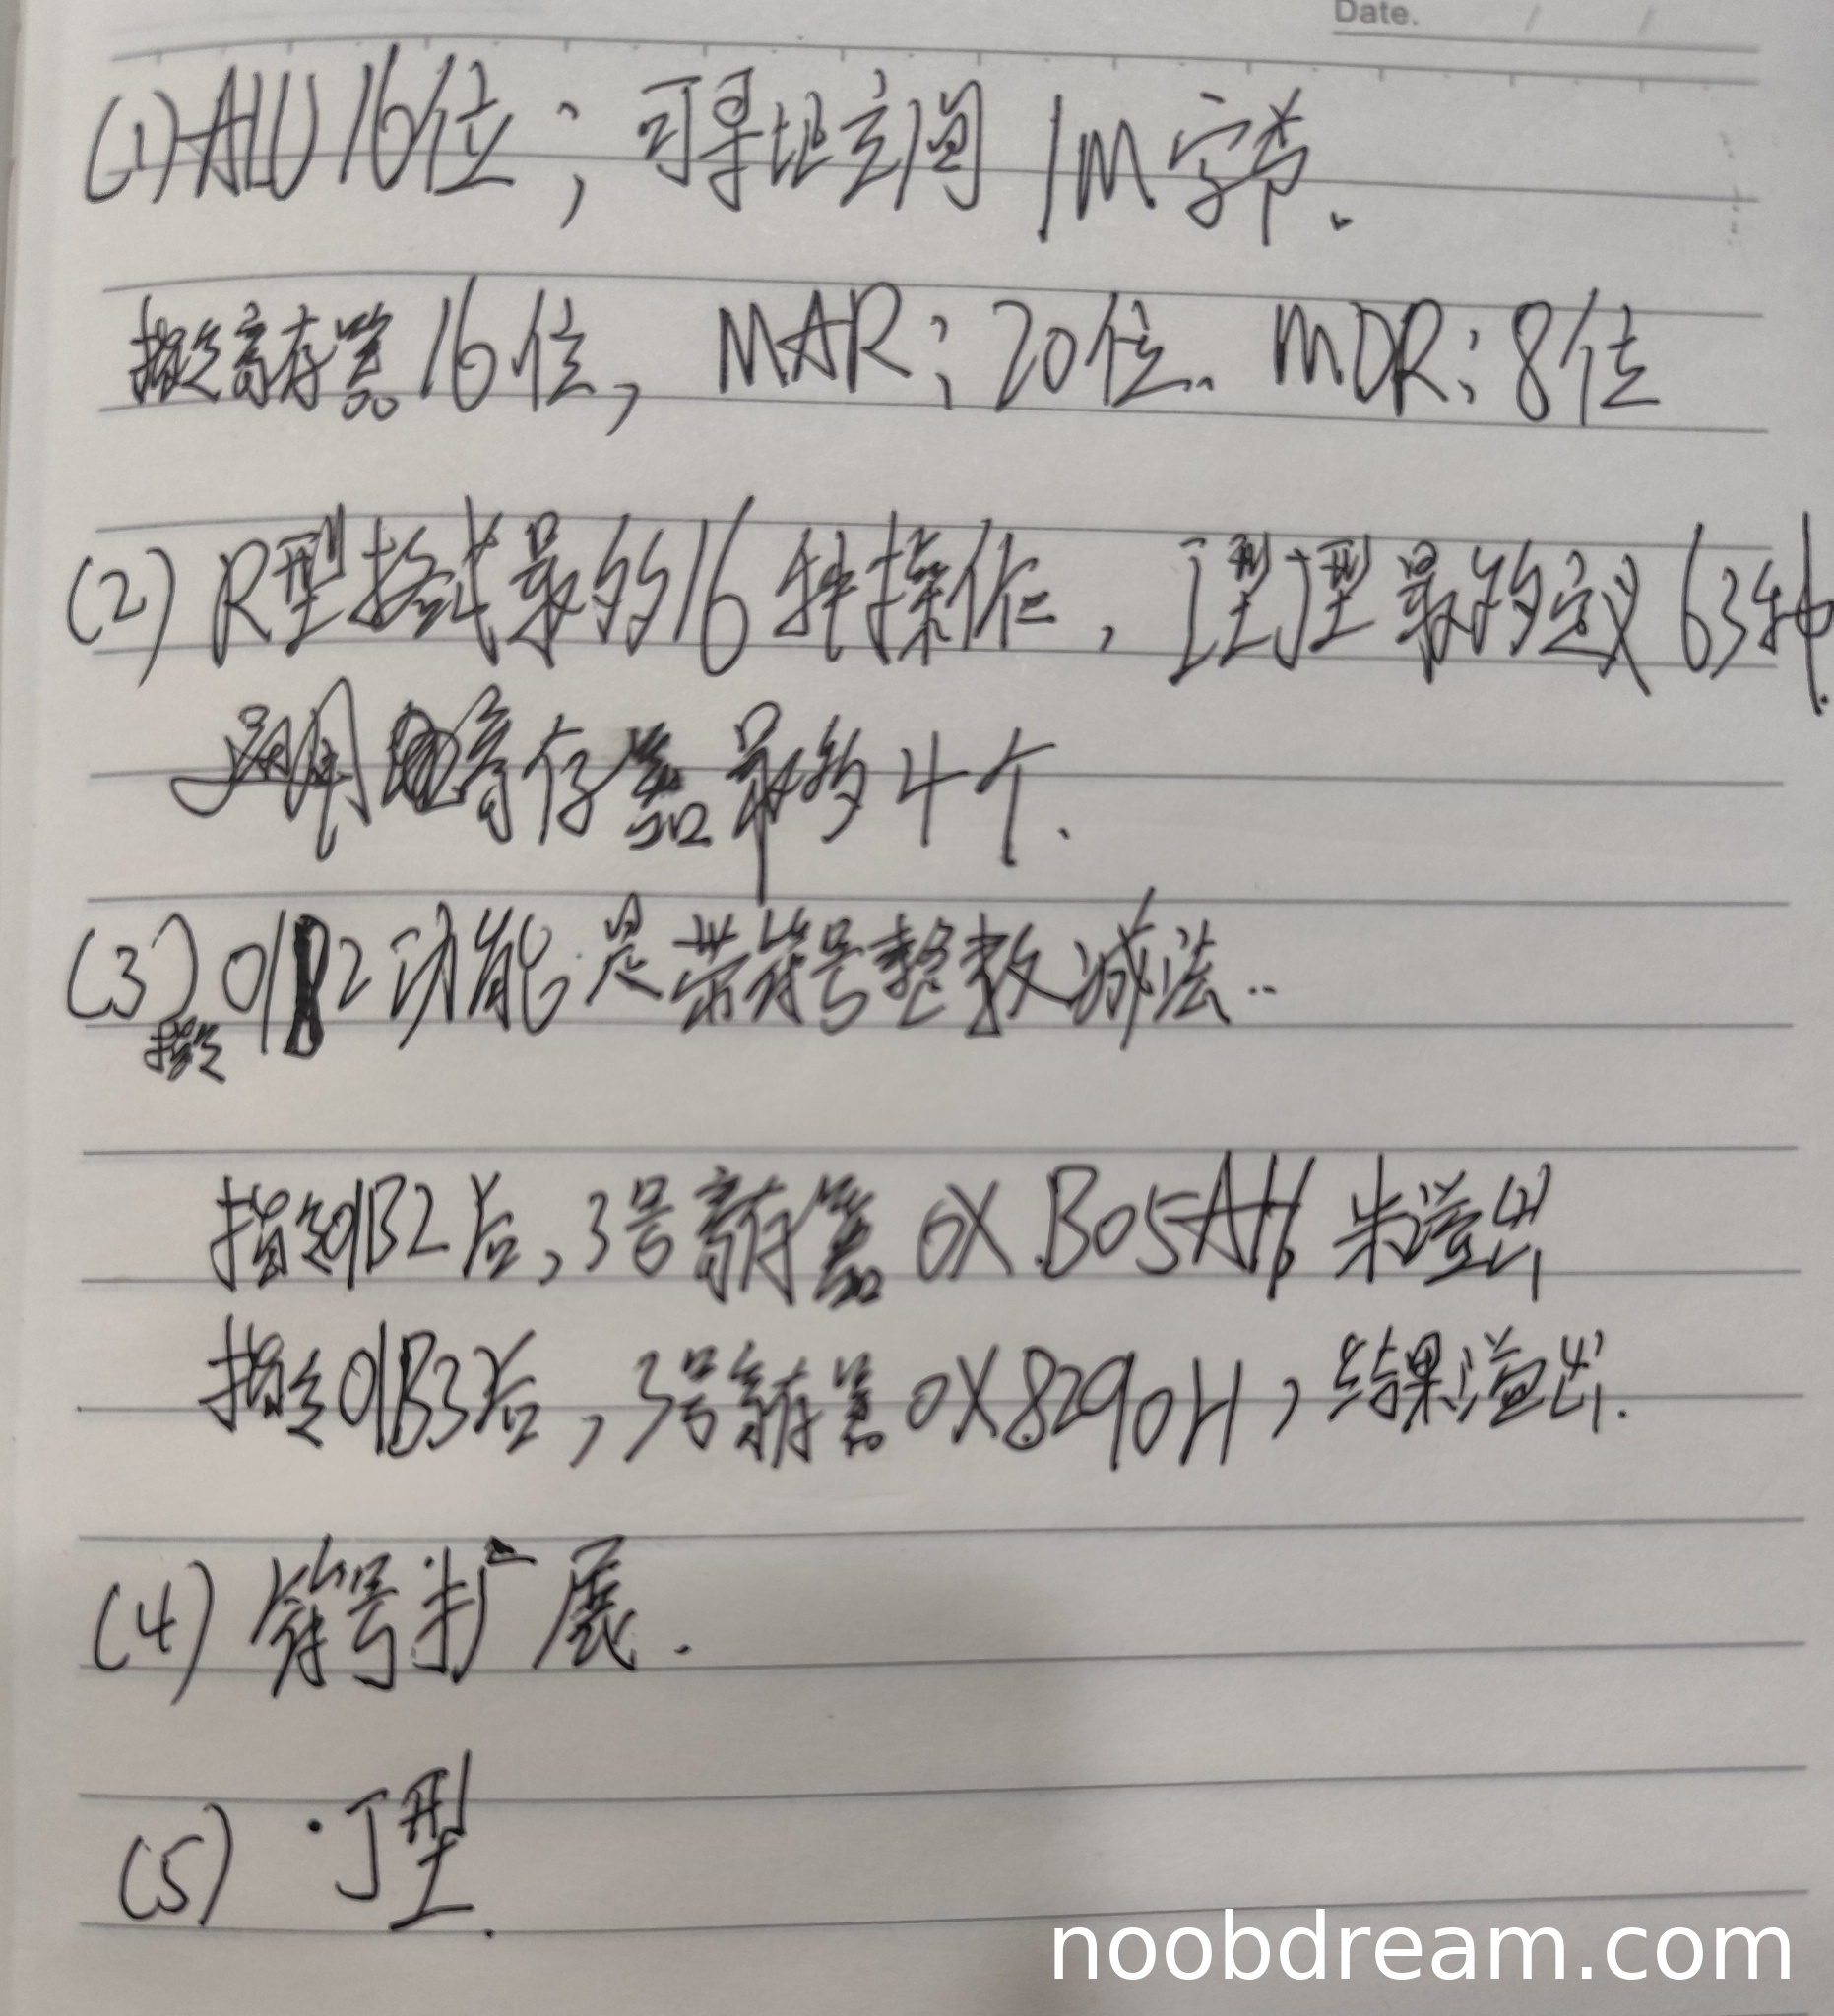 Date. / /
(1) ALU 16位；可寻址空间 1M字节.
指令寄存器16位， MAR：20位. MDR：8位
(2) R型格式最多16种操作， I型J型最多定义63种.
通用寄存器最多4个.
(3) 01B2功能是带符号整数减法..
指令
指令01B2后，3号寄存器 0X B05AH 未溢出
指令01B3后，3号寄存器0X8290H，结果溢出.
(4) 符号扩展.
(5) ·J型.
noobdream.com